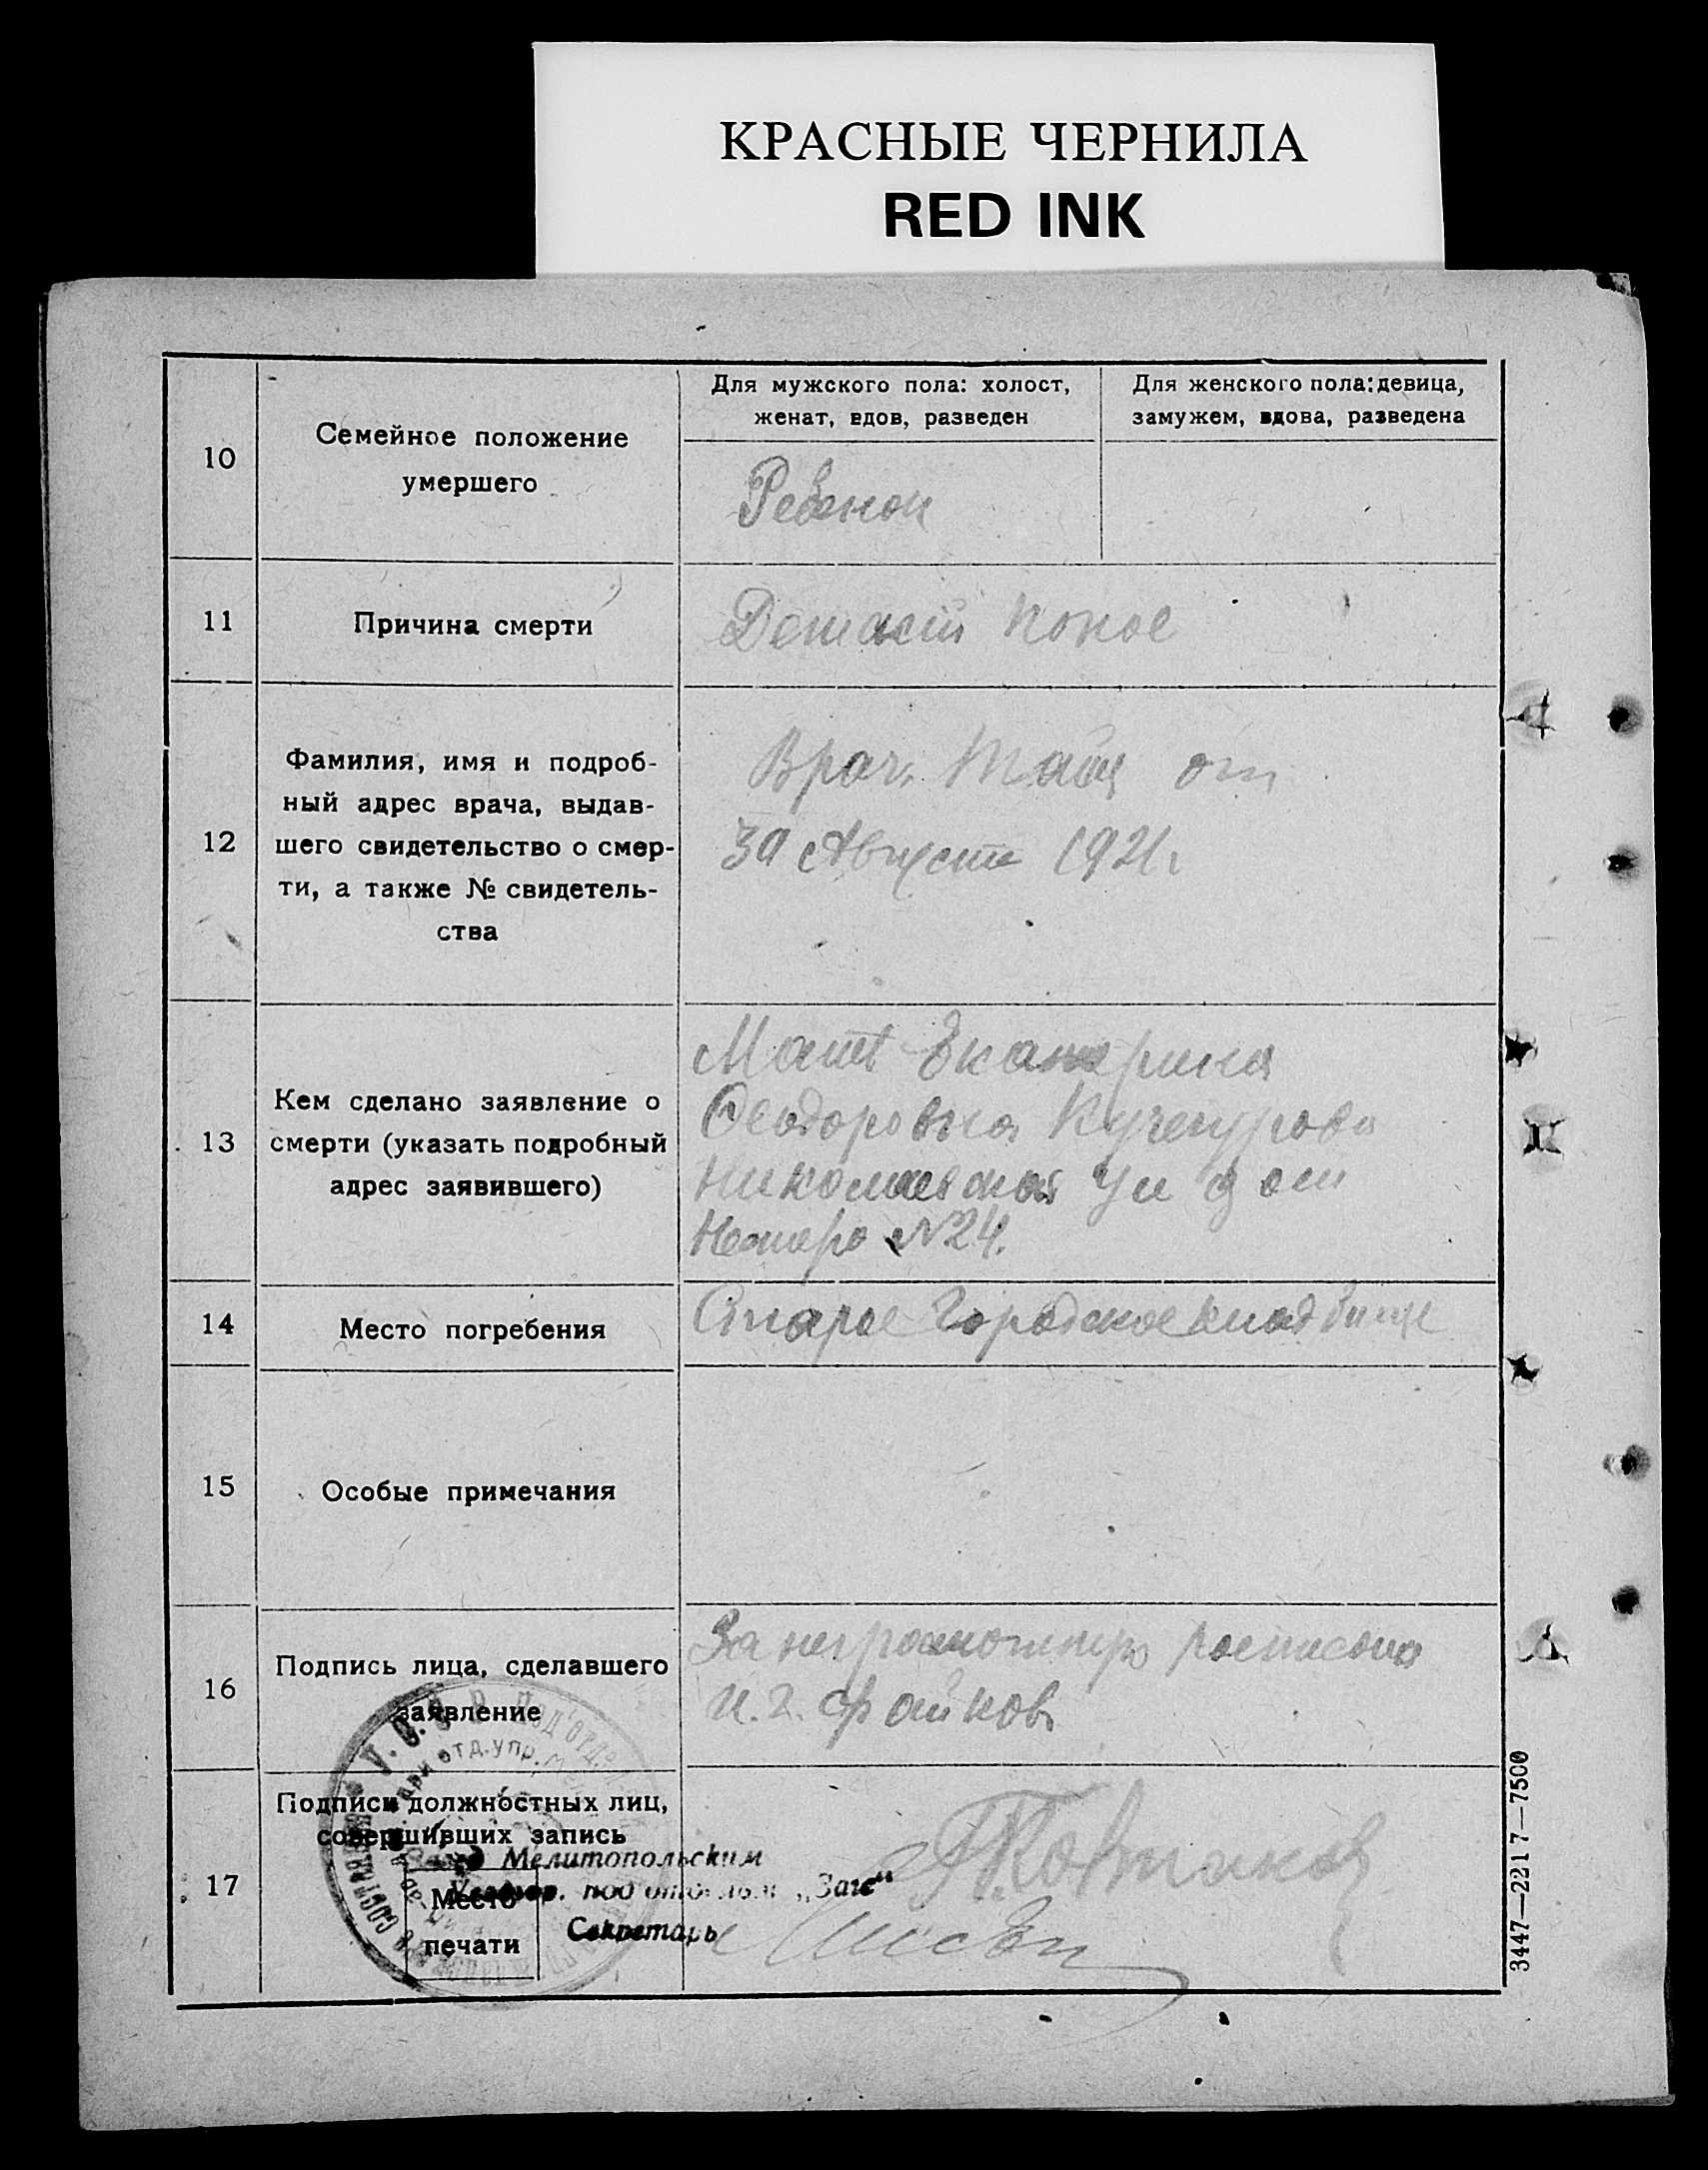 КРАСНЫЕ ЧЕРНИЛА
RED INK
Для мужского пола: холост,
женат, вдов, разведен
Для женского пола: девица,
замужем, вдова, разведена
10
Семейное положение
умершего
Ребенок
11
Причина смерти
Детский
12
Фамилия, имя и подроб-
ный адрес врача, выдав-
шего свидетельство о смер-
ти, а также № свидетель-
ства
Врач от
Августа 1921 г
13
Кем сделано заявление о
смерти (указать подробный
адрес заявившего)
Мать Екатерина
Феодоровна Кучегурова
Николаевская ул дом
Номер №24.
14
Место погребения
Старое Городское кладбище
15
Особые примечания
16
Подпись лица, сделавшего
заявление
За неграмотную
И. Г.
17
Подписи должностных лиц,
совершивших запись
Мелитопольским
под „Загс“
Секретарь
Место
печати
У.С.С.Р. Под'отдел
при отд. упр.
3447—2217—7500